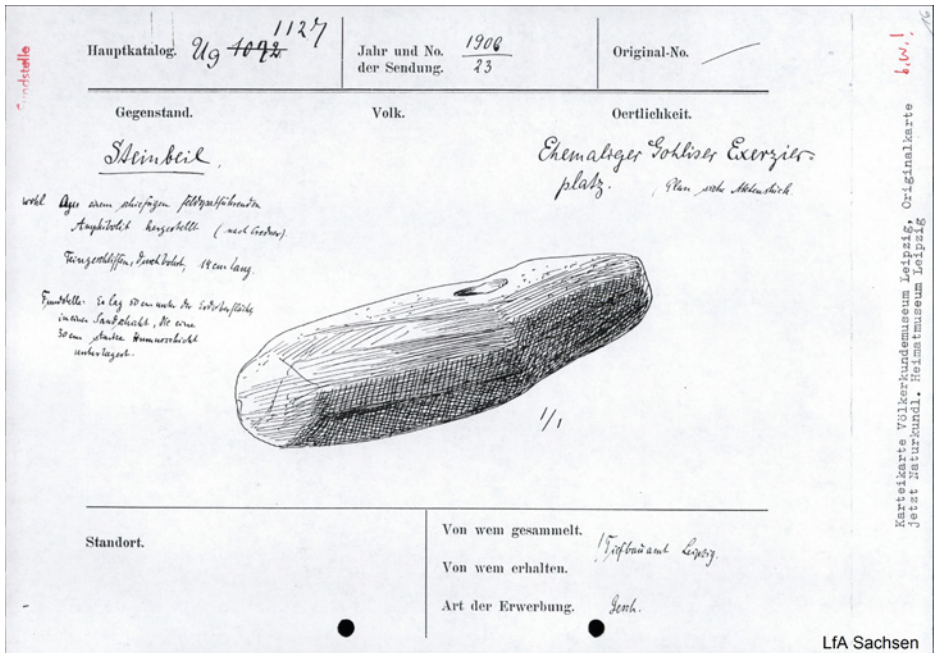 1127
Hauptkatalog. Ug 1092
Jahr und No. 1906
der Sendung. 23
Original-No.
b.W.!
Fundstelle
Gegenstand.
Volk.
Oertlichkeit.
Steinbeil.
Ehemaliger Gohliser Exerzier-
platz. (Plan siehe Aktenstück.
wohl Aus einem schiefrigen feldspatführenden
Amphibolit hergestellt (nach Credner).
Feingeschliffen, durchbohrt, 19 cm lang.
Fundstelle: Es lag 50 cm unter der Bodenoberfläche
in einer Sandschicht, die eine
30 cm starke Humusschicht
unterlagert.
1/1
Standort.
Von wem gesammelt.
Tiefbauamt Leipzig.
Von wem erhalten.
Art der Erwerbung. Gesch.
Karteikarte Völkerkundemuseum Leipzig, Originalkarte
jetzt Naturkundl. Heimatmuseum Leipzig
LfA Sachsen